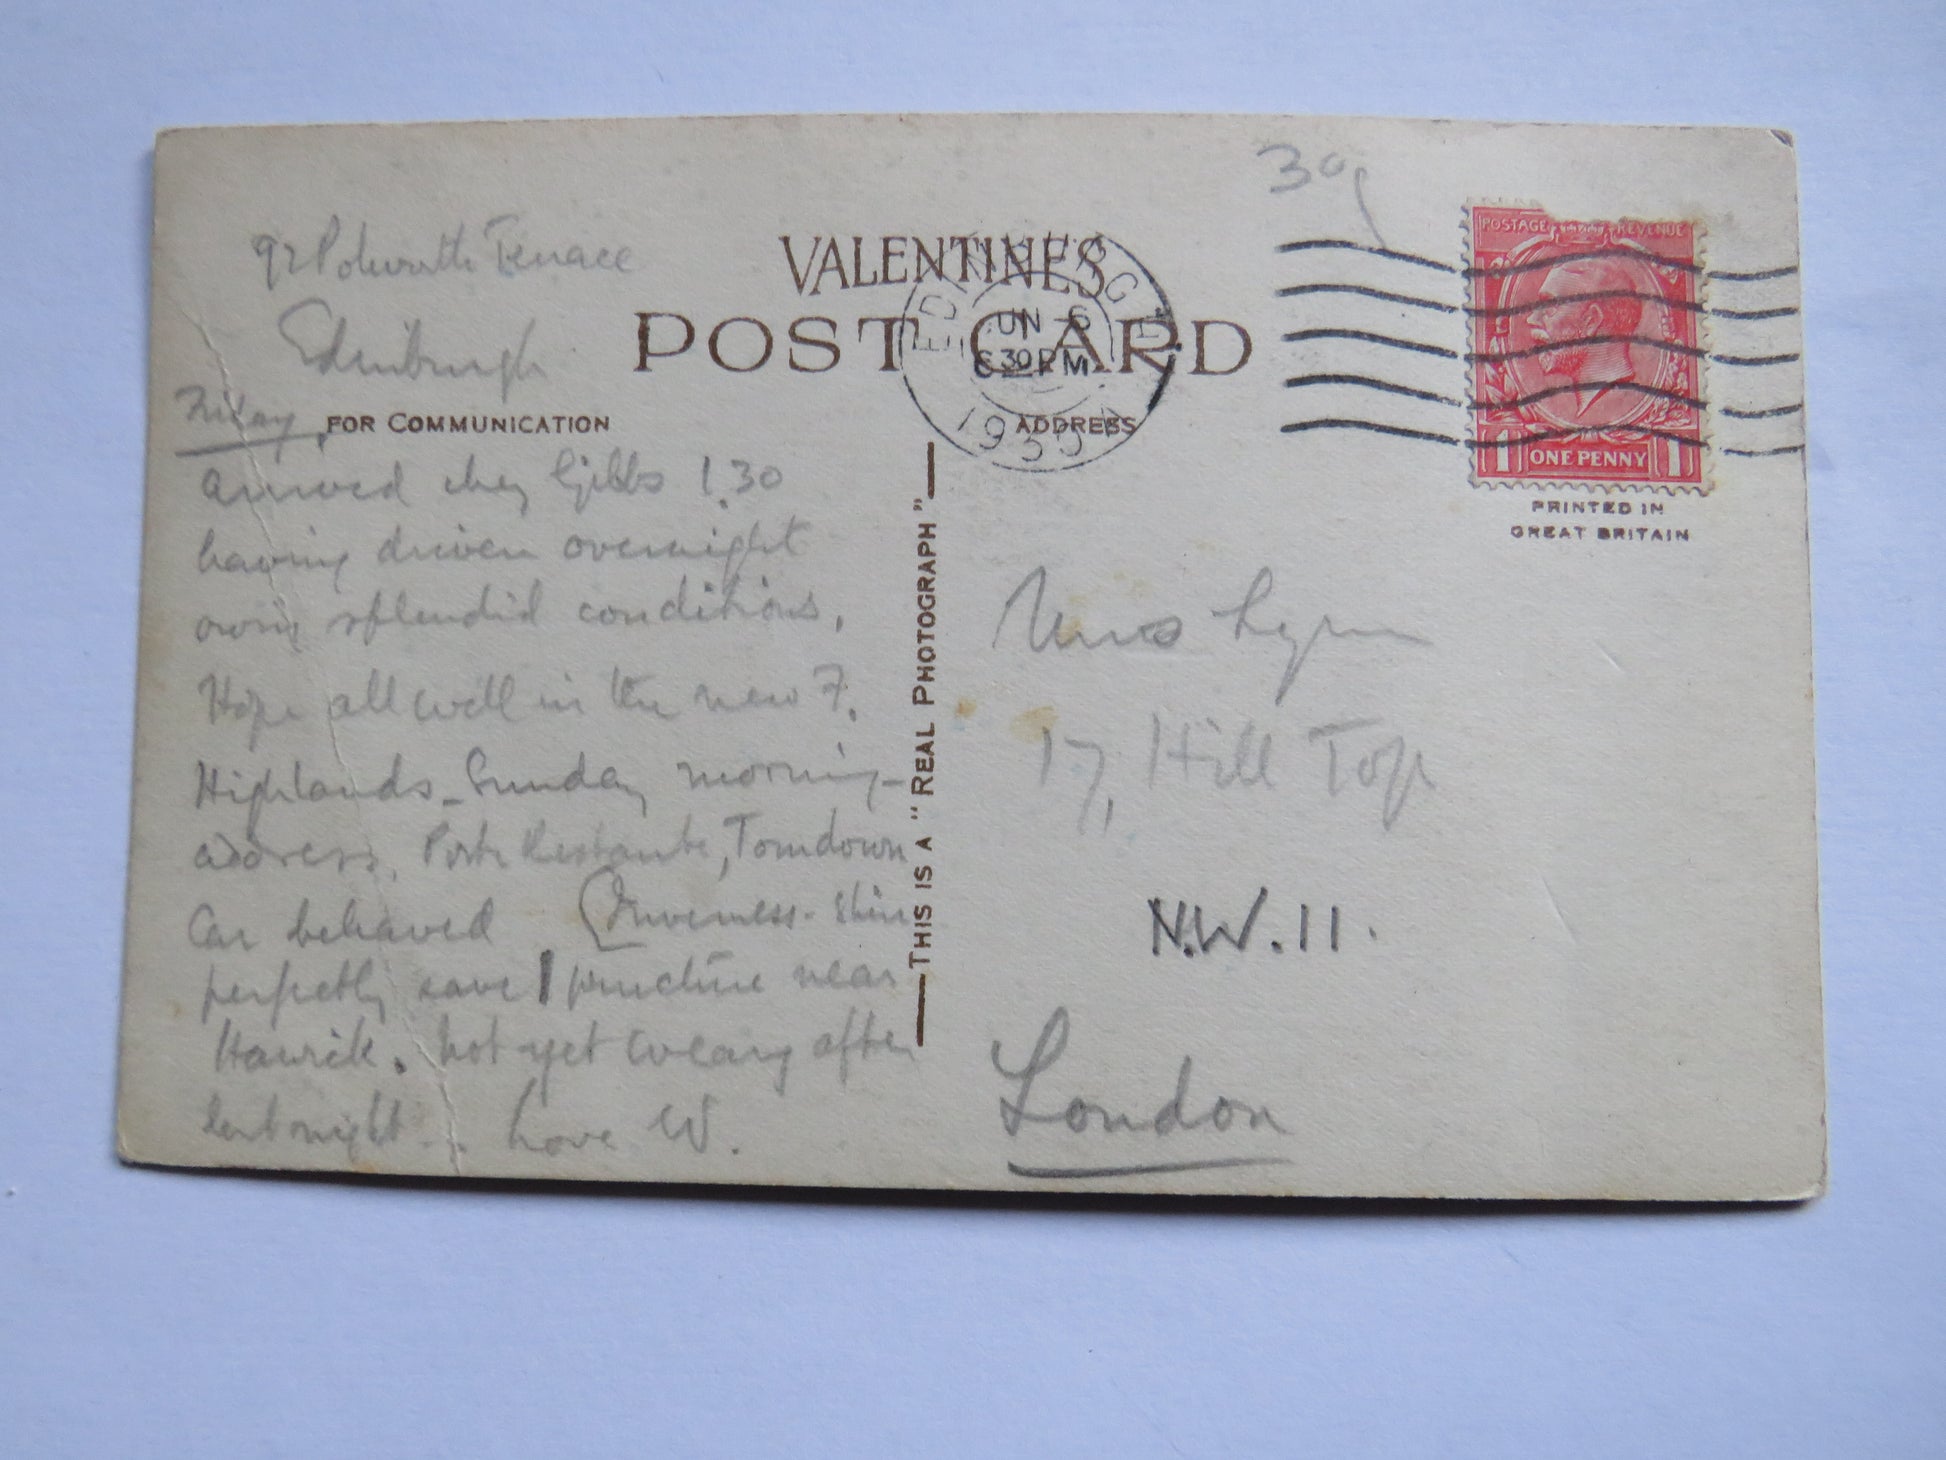 30
92 Polwarth Terrace
Edinburgh
Friday
VALENTINES
POST CARD
FOR COMMUNICATION
ADDRESS
EDINBURGH
JUN 6
6 30 PM
193
POSTAGE REVENUE
1 ONE PENNY 1
PRINTED IN
GREAT BRITAIN
THIS IS A "REAL PHOTOGRAPH"
arrived chez Gibbs 1.30
having driven overnight
owing splendid conditions.
Hope all well in the new F.
Highlands - Sunday morning -
address, Poste Restante, Tomdoun
Car behaved (Inverness-shire
perfectly save 1 puncture near
Hawick. Not yet weary after
last night. Love W.
Miss Lynn
17, Hill Top
N.W.11.
London